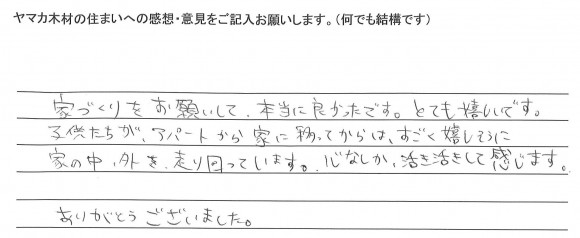 ヤマカ木材の住まいへの感想・意見をご記入お願いします。（何でも結構です）
家づくりをお願いして、本当に良かったです。とても嬉しいです。
子供たちが、アパートから家に移ってからは、すごく嬉しそうに
家の中、外を、走り回っています。心なしか、活き活きして感じます。
ありがとうございました。